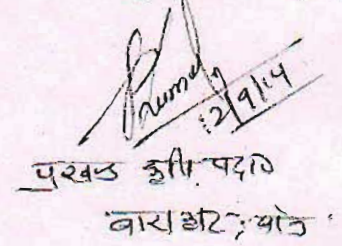 12/9/14
प्रखण्ड कृषि पदा०
बाराहाट, बाँका